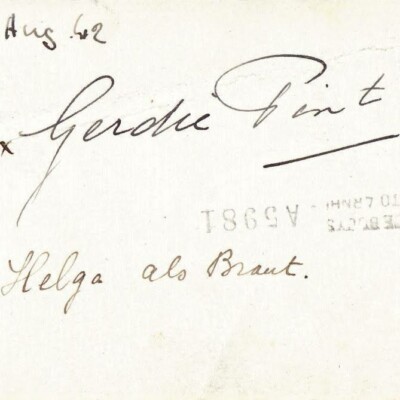 Aug. 42
x Gerdie Pint
A5981
Helga als Braut.